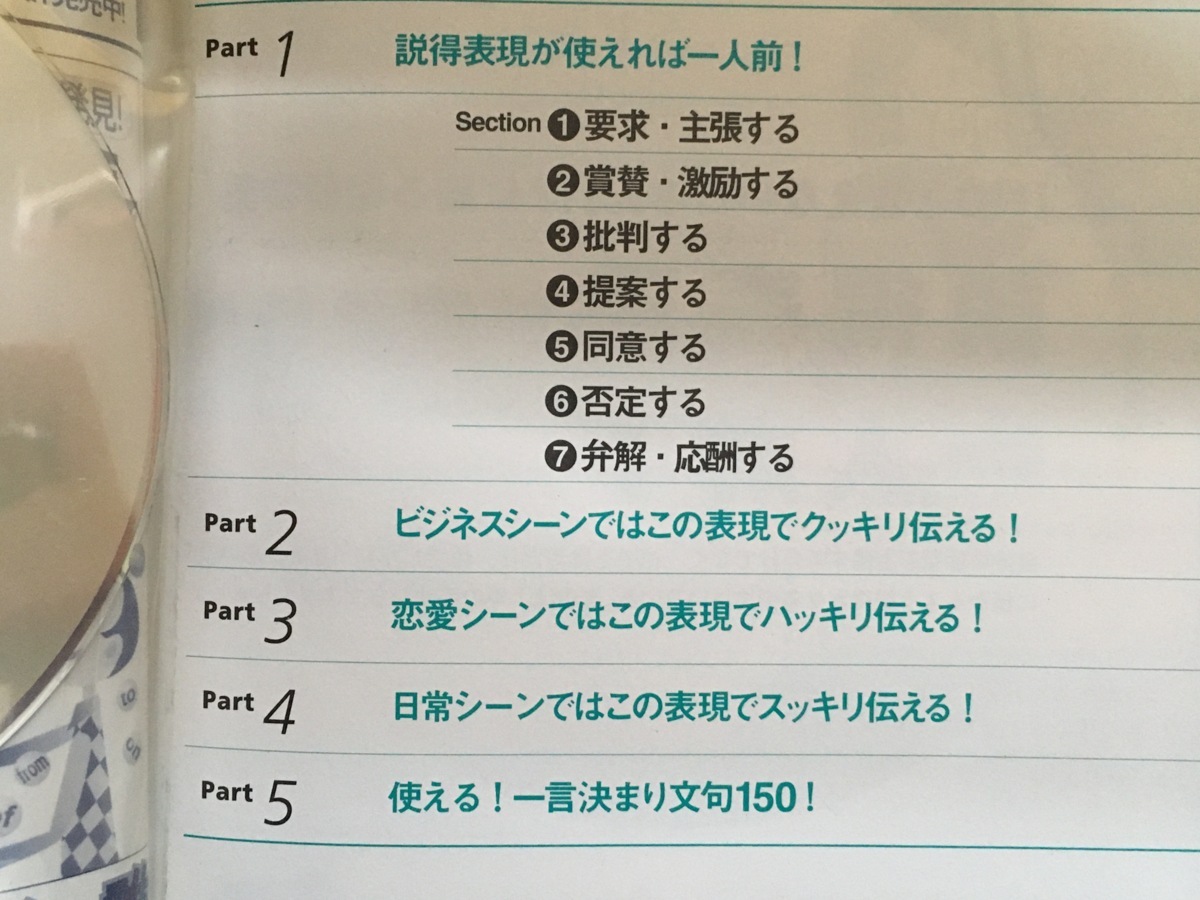 発売中!
発見!
Part 1 説得表現が使えれば一人前！
Section ❶要求・主張する
❷賞賛・激励する
❸批判する
❹提案する
❺同意する
❻否定する
❼弁解・応酬する
Part 2 ビジネスシーンではこの表現でクッキリ伝える！
Part 3 恋愛シーンではこの表現でハッキリ伝える！
Part 4 日常シーンではこの表現でスッキリ伝える！
Part 5 使える！一言決まり文句150！
from
of